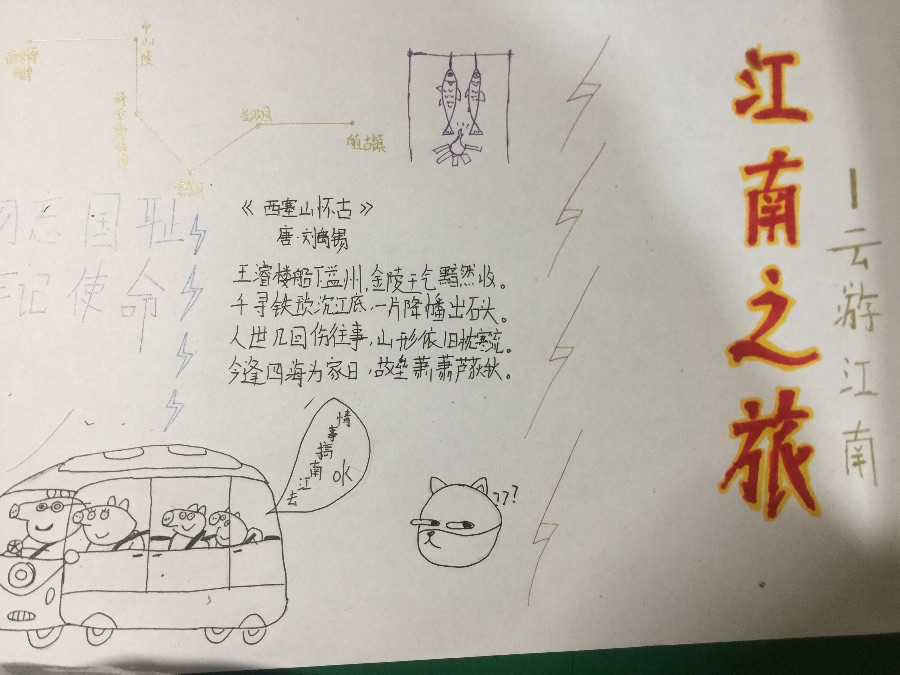 江南之旅
一云游江南
中山陵
勿忘国耻
牢记使命
《西塞山怀古》
唐·刘禹锡
王濬楼船下益州,金陵王气黯然收。
千寻铁锁沉江底,一片降幡出石头。
人世几回伤往事,山形依旧枕寒流。
今逢四海为家日,故垒萧萧芦荻秋。
去江南搞事情
OK
???